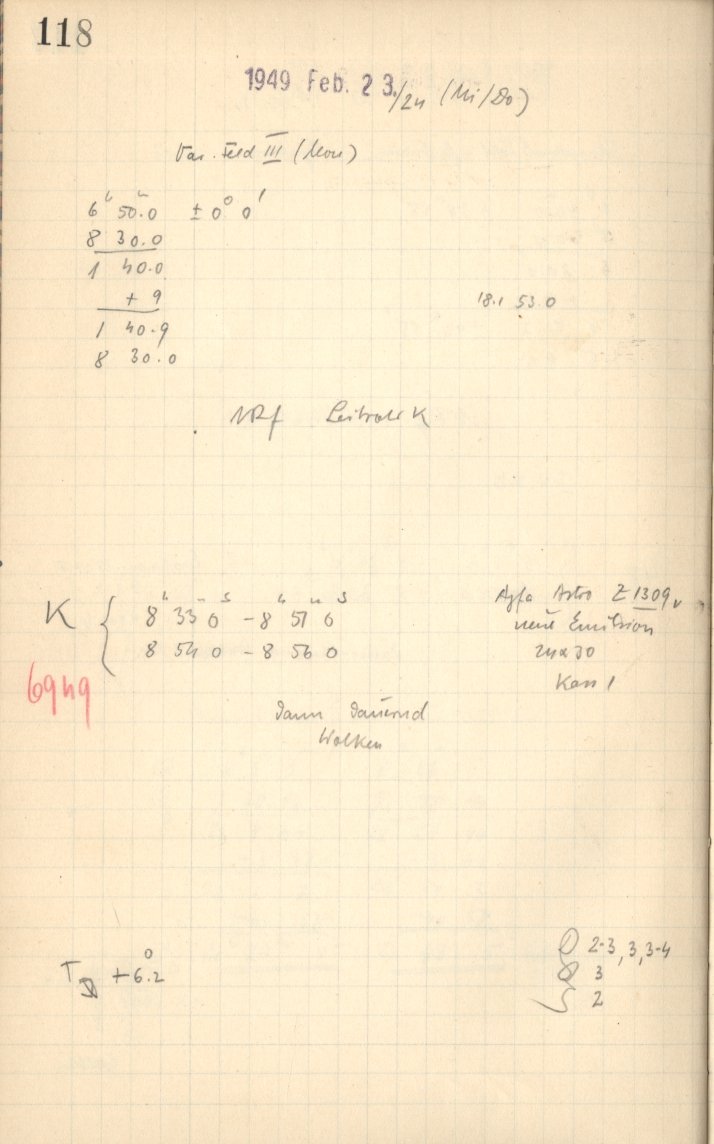 118
1949 Feb. 23./24 (Mi/Do)
Var. Feld III (Mon)
6ʰ 50.0 ± 0° 0'
8 30.0
1 40.0
+ 9
18.1 53.0
1 40.9
8 30.0
Leitrohr K
K { 8ʰ 33ᵐ 0ˢ - 8ʰ 51ᵐ 0ˢ
8 54 0 - 8 56 0
Agfa Astro Z 1309
neue Emulsion
24x30
Kass 1
6949
Dann dauernd
Wolken
T +6.2°
2-3, 3, 3-4
3
2